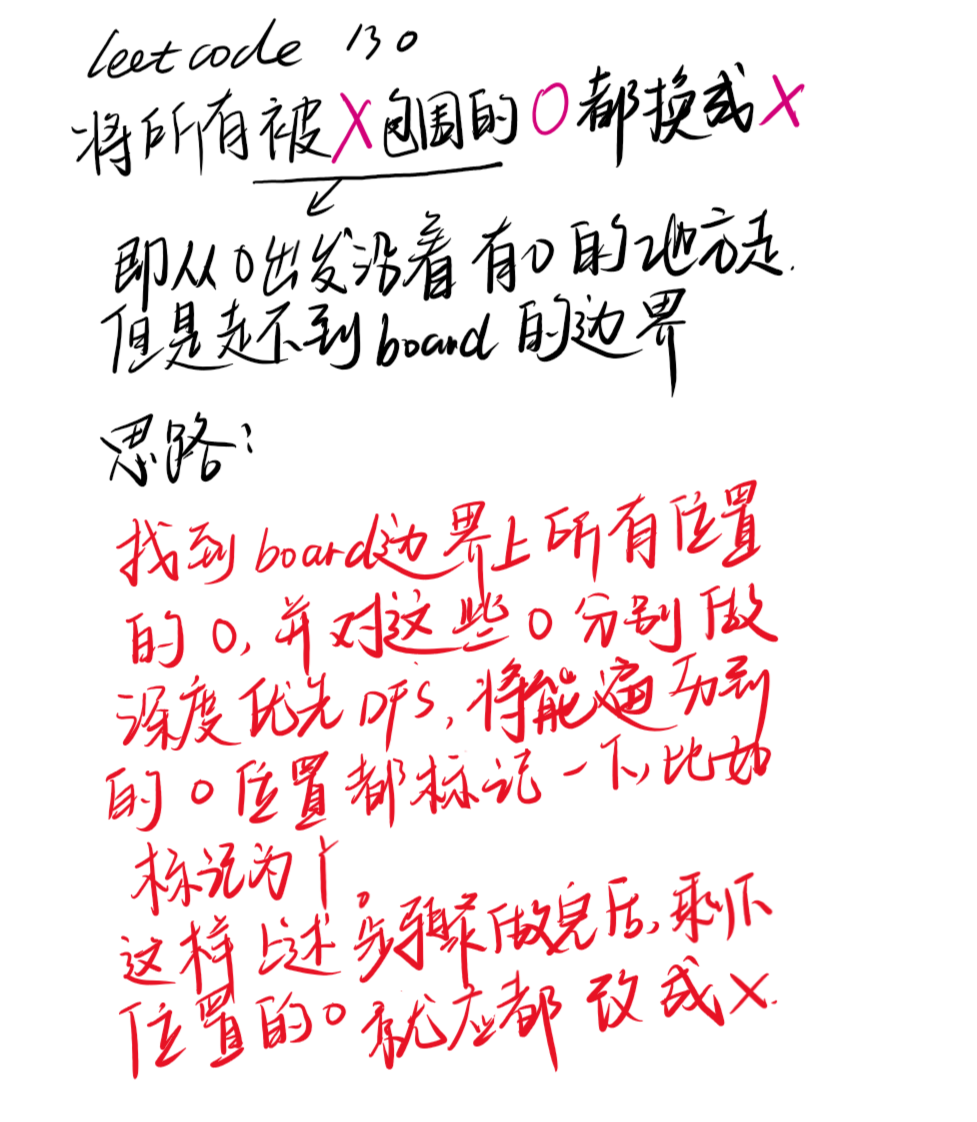 leetcode 130
将所有被X包围的O都换成X
即从O出发沿着有O的地方走.
但是走不到board的边界
思路:
找到board边界上所有位置
的O,并对这些O分别做
深度优先DFS,将能遍历到
的O位置都标记一下,比如
标记为1。
这样上述步骤做完后,剩下
位置的O就应都改成X.